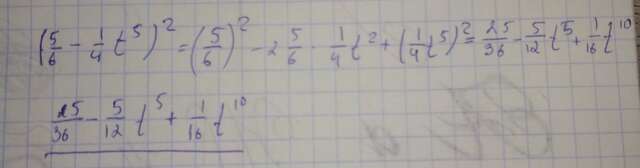 (5/6 - 1/4 t⁵)² = (5/6)² - 2 5/6 · 1/4 t² + (1/4 t⁵)² = 25/36 - 5/12 t⁵ + 1/16 t¹⁰
25/36 - 5/12 t⁵ + 1/16 t¹⁰